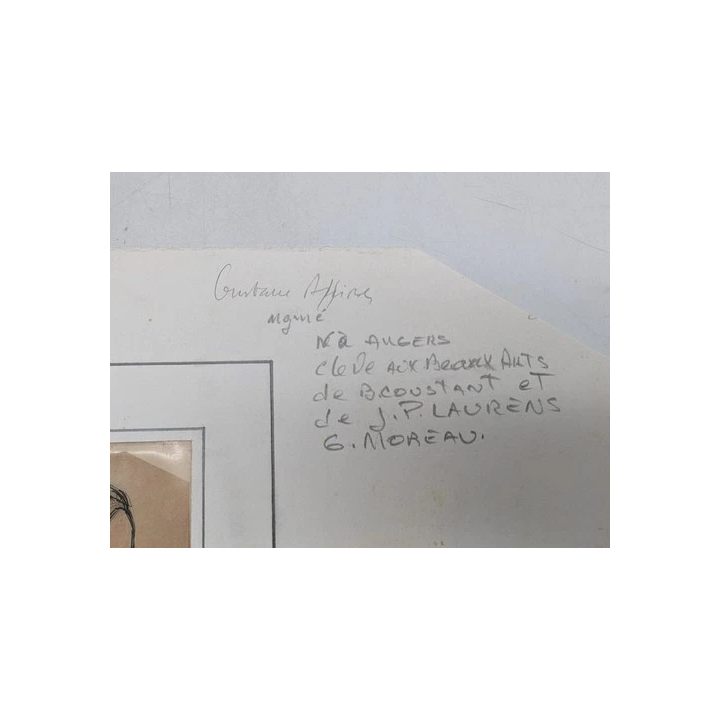 Gustave Assire
signé
Né à ANGERS
eleve AUX Beaux ARTS
de B.COUSTANT eT
de J.P. LAURENS
G. MOREAU.